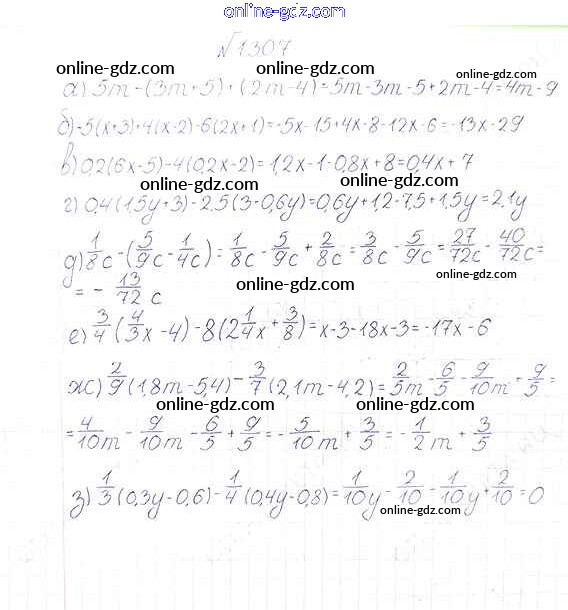 online-gdz.com
№1307
online-gdz.com online-gdz.com
а) 5m-(3m+5)+(2m-4)=5m-3m-5+2m-4=4m-9
б)-5(x+3)+4(x-2)-6(2x+1)=-5x-15+4x-8-12x-6=-13x-29
в) 0,2(6x-5)-4(0,2x-2)=1,2x-1-0,8x+8=0,4x+7
online-gdz.com online-gdz.com
г) 0,4(1,5y+3)-2,5(3-0,6y)=0,6y+1,2-7,5+1,5y=2,1y
online-gdz.com
д) 1/8c-(5/9c-1/4c)=1/8c-5/9c+2/8c=3/8c-5/9c=27/72c-40/72c=
online-gdz.com
=-13/72c
online-gdz.com
е) 3/4(4/3x-4)-8(2 1/4x+3/8)=x-3-18x-3=-17x-6
ж) 2/9(1,8m-5,4)-3/7(2,1m-4,2)=2/5m-6/5-9/10m+9/5=
online-gdz.com online-gdz.com
=4/10m-9/10m-6/5+9/5=-5/10m+3/5=-1/2m+3/5
online-gdz.com
з) 1/3(0,3y-0,6)-1/4(0,4y-0,8)=1/10y-2/10-1/10y+2/10=0
online-gdz.com
online-gdz.com